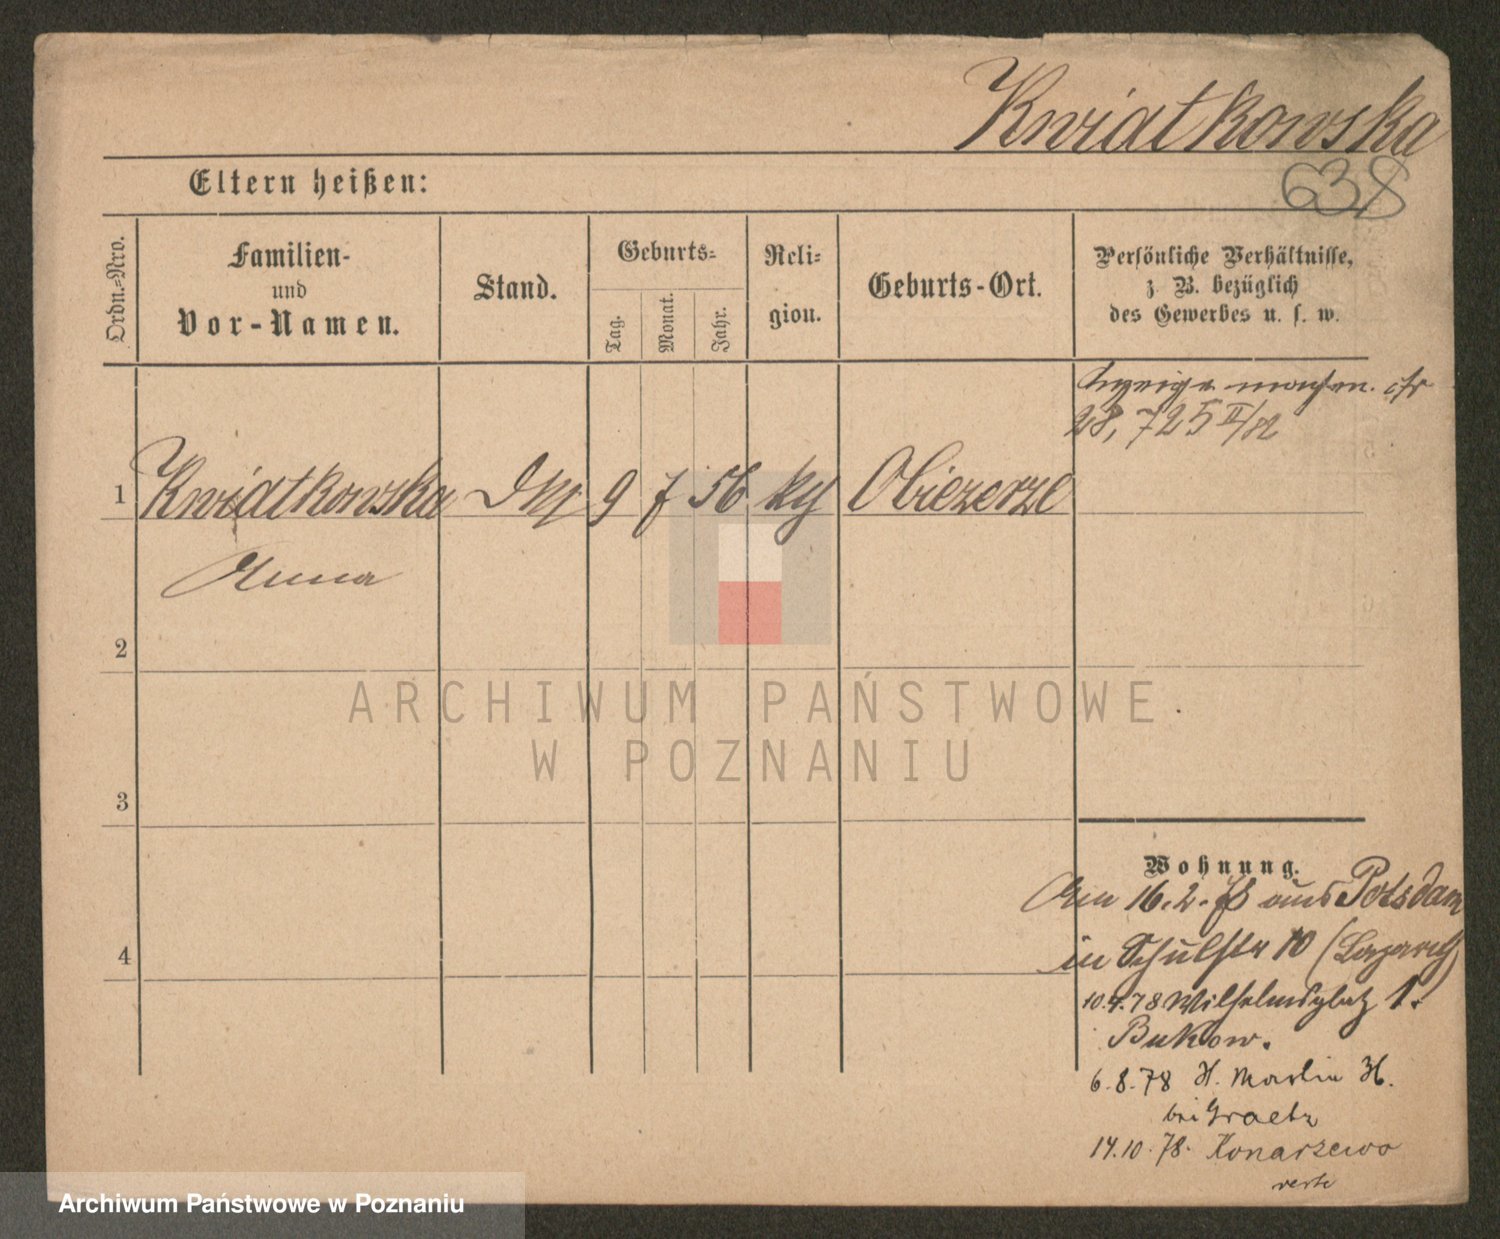 Kwiatkowska
638
Eltern heißen:
Ordn.-Nro.
Familien-
und
Vor-Namen.
Stand.
Geburts-
Tag.
Monat.
Jahr.
Reli-
gion.
Geburts-Ort.
Persönliche Verhältnisse,
z. B. bezüglich
des Gewerbes u. s. w.
Anzeige machen. cfr
28,725 II/82
1 Kwiatkowska 9 7 56 Obiezerze
Anna
2
3
4
ARCHIWUM PAŃSTWOWE
W POZNANIU
Wohnung.
16.2.78 aus Potsdam
in Schulstr 10
10.4.78 Wilhelmsplatz 1.
Bukow.
6.8.78 H. Martin
bei Graetz
14.10.78. Konarzewo
verte
Archiwum Państwowe w Poznaniu